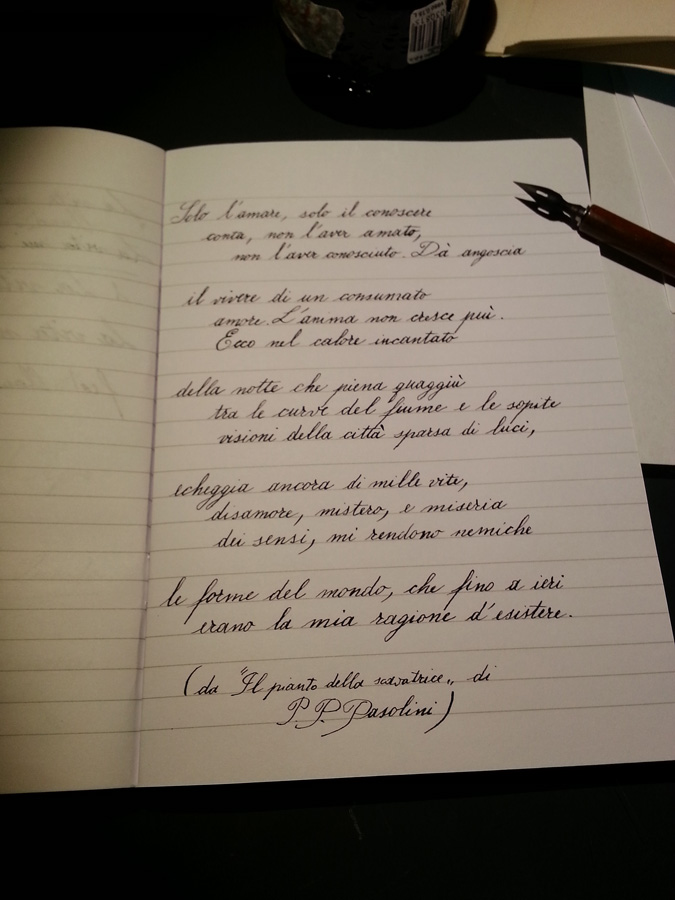 Solo l'amare, solo il conoscere
conta, non l'aver amato,
non l'aver conosciuto. Dà angoscia
il vivere di un consumato
amore. L'anima non cresce più.
Ecco nel calore incantato
della notte che piena quaggiù
tra le curve del fiume e le sopite
visioni della città sparsa di luci,
echeggia ancora di mille vite,
disamore, mistero, e miseria
dei sensi, mi rendono nemiche
le forme del mondo, che fino a ieri
erano la mia ragione d'esistere.
(da "Il pianto della scavatrice„ di
P. P. Pasolini)